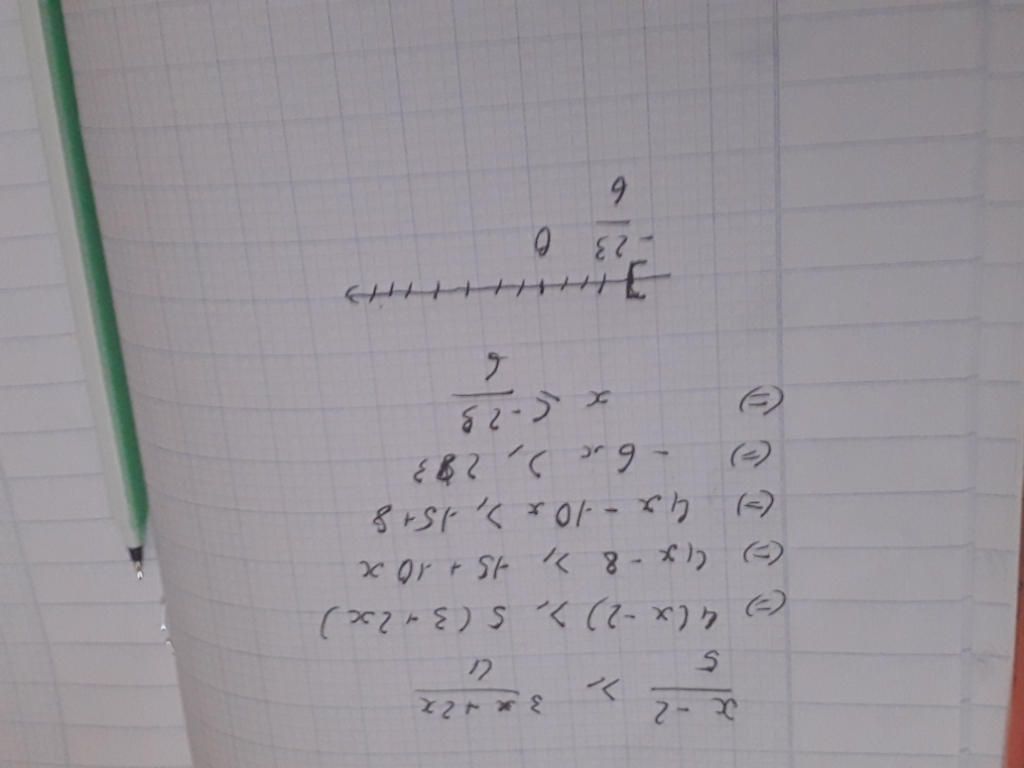 x - 2 ≥ 3 + 2x
5 4
(=) 4(x - 2) ≥ 5(3 + 2x)
(=) 4x - 8 ≥ 15 + 10x
(=) 4x - 10x ≥ 15 + 8
(=) - 6x ≥ 23
(=) x ≤ - 23
6
- 23 0
6